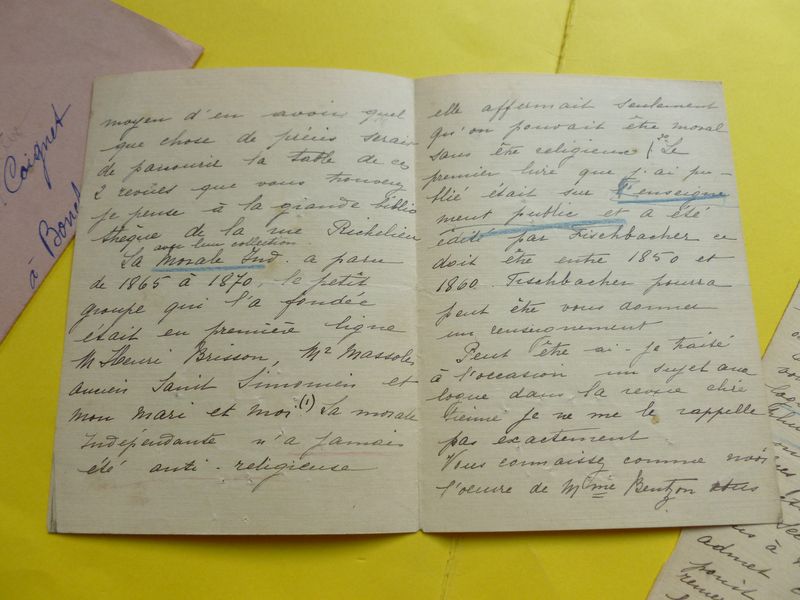 Coignet
à Bonet
moyen d'en avoir quel
que chose de précis serait
de parcourir la table de ces
2 revues que vous trouverez
je pense à la grande biblio
thèque de la rue Richelieu
avec leur collection
La Morale Ind. a paru
de 1865 à 1870, le petit
groupe qui l'a fondée
était en première ligne
M Henri Brisson, Mr Massoles
ancien Saint Simonien et
mon mari et moi (1) La morale
Indépendante n'a jamais
été anti-religieuse
elle affermait seulement
qu'on pouvait être moral
sans être religieux Le
premier livre que j'ai pu-
blié était sur l'enseigne
ment public et a été
édité par Fischbacher ce
doit être entre 1850 et
1860. Fischbacher pourra
peut être vous donner
un renseignement
Peut être ai-je traité
à l'occasion un sujet ana
logue dans la revue chré
tienne je ne me le rappelle
pas exactement
Vous connaissez comme moi
l'oeuvre de Mme Bentzon
admet